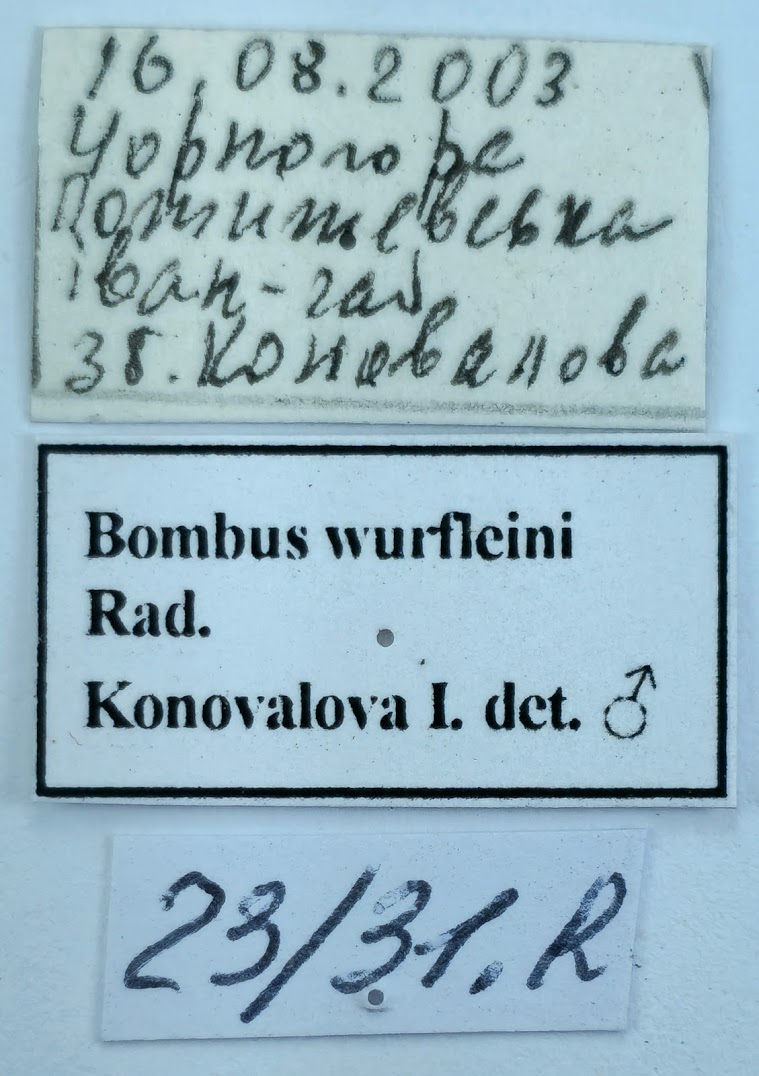 16.08.2003
Чорногора
Пожижевська
Іван-чай
Зб. Коновалова
Bombus wurfleini
Rad.
Konovalova I. det. ♂
23/31.R